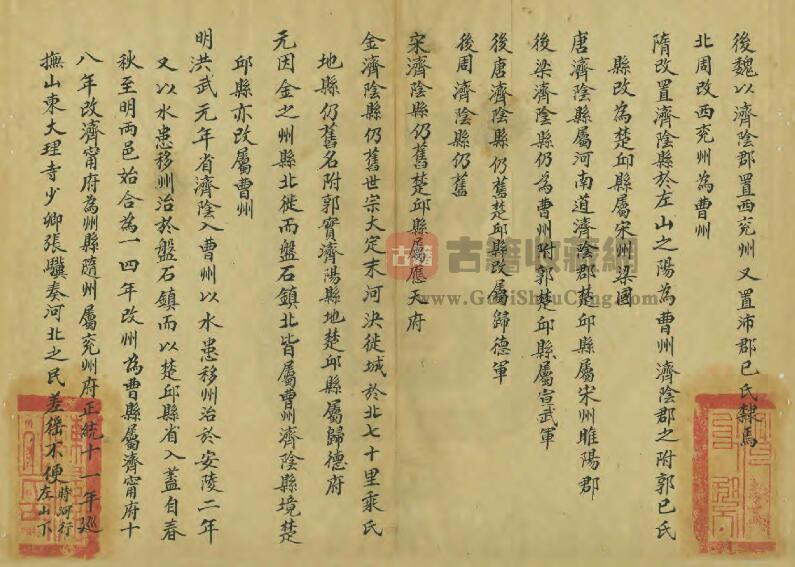 後魏以濟陰郡置西兖州又置沛郡巳氏隸焉
北周改西兖州為曹州
隋改置濟陰縣於左山之陽為曹州濟陰郡之附郭巳氏
縣改為楚邱縣屬宋州梁國
唐濟陰縣屬河南道濟陰郡楚邱縣屬宋州睢陽郡
後梁濟陰縣仍為曹州附郭楚邱縣屬宣武軍
後唐濟陰縣仍舊楚邱縣改屬歸德軍
後周濟陰縣仍舊
宋濟陰縣仍舊楚邱縣屬應天府
金濟陰縣仍舊世宗大定末河決徙城於北七十里乘氏
地縣仍舊名附郭實濟陽縣地楚邱縣屬歸德府
元因金之州縣北徙而盤石鎮北皆屬曹州濟陰縣境楚
邱縣亦改屬曹州
明洪武元年省濟陰入曹州以水患移州治於安陵二年
又以水患移州治於盤石鎮而以楚邱縣省入蓋自春
秋至明兩邑始合為一四年改州為曹縣屬濟甯府十
八年改濟甯府為州縣隨州屬兖州府正統十一年廵
撫山東大理寺少卿張驥奏河北之民差徭不便時河行左山下
古籍
古籍收藏網
www.GuJiShouCang.com